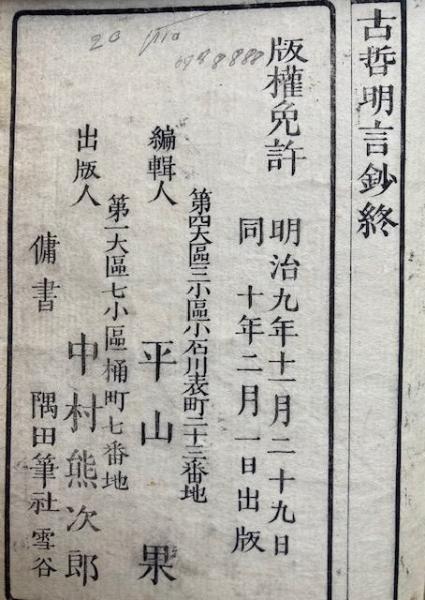 古哲明言鈔終
版權免許
明治九年十一月二十九日
同十年二月一日出版
第四大區三小區小石川表町二十三番地
編輯人 平山果
第一大區七小區桶町七番地
出版人 中村熊次郎
傭書 隅田筆社雪谷
20